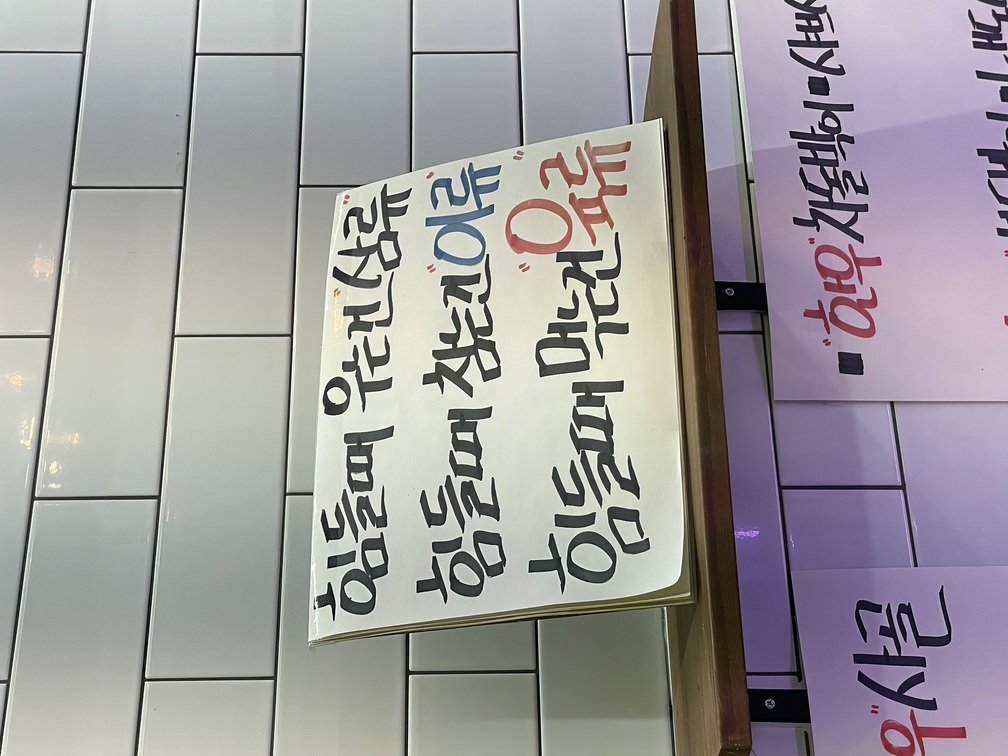 힘들때 우는건 "삼류"
힘들때 참는건 "이류"
힘들때 먹는건 "육류"
우" 사골
■ "한우" 차돌박이 ■ 샤브